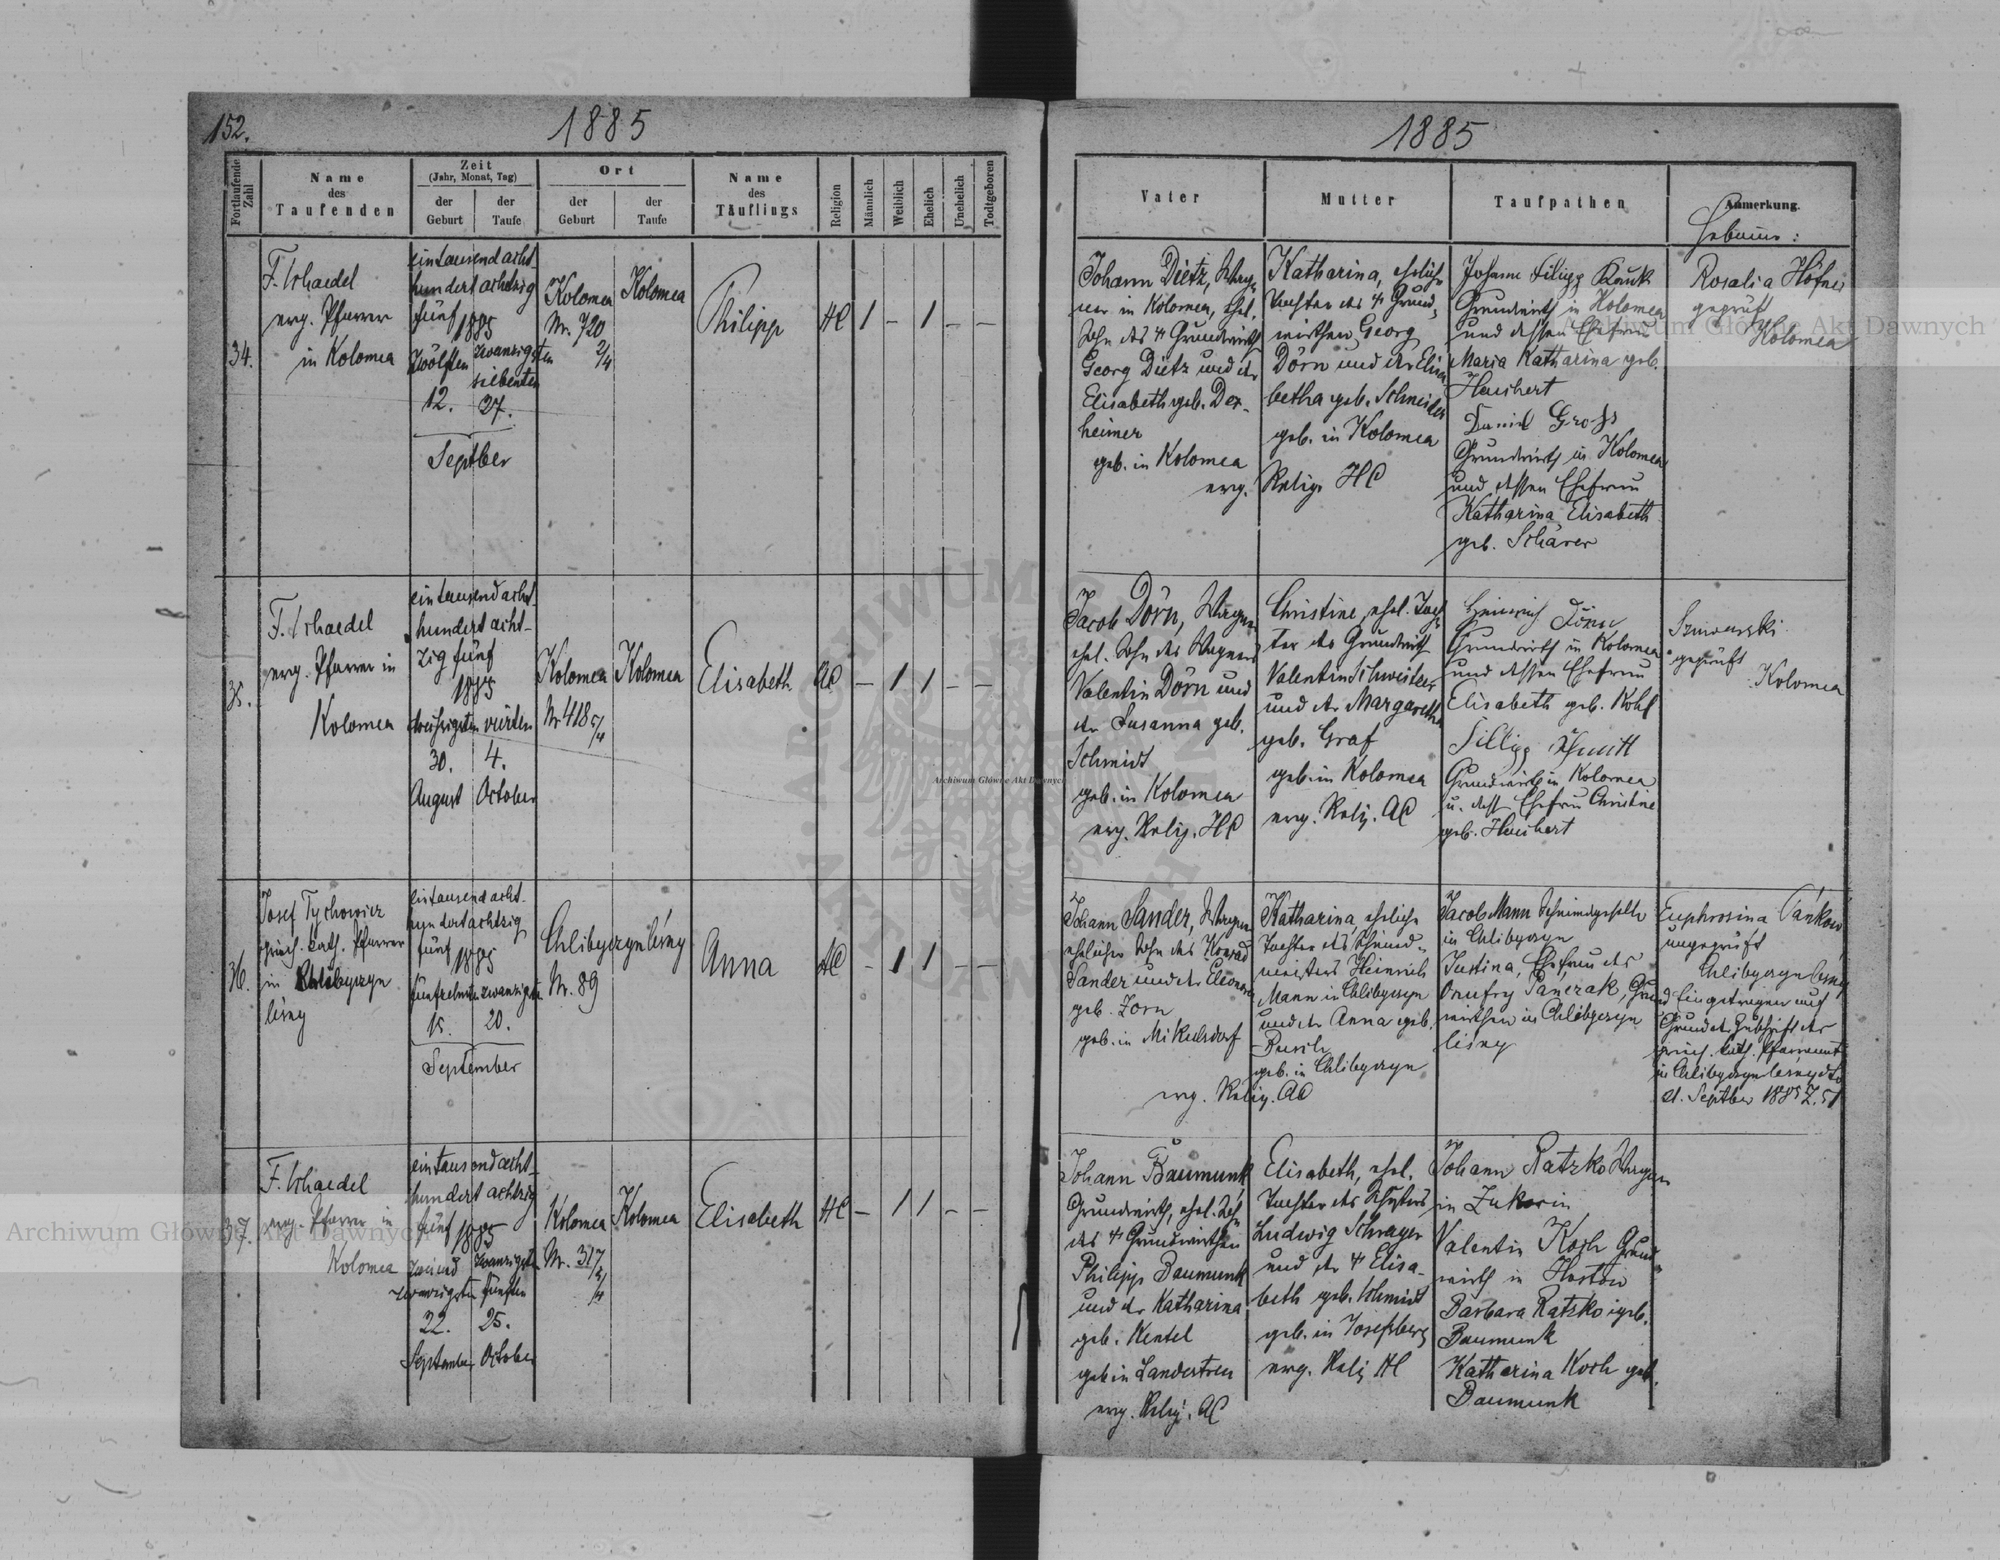 152.
1885
Fortlaufende Zahl
Name
des
Taufenden
Zeit
(Jahr, Monat, Tag)
der
Geburt
der
Taufe
Ort
der
Geburt
der
Taufe
Name
des
Täuflings
Religion
Männlich
Weiblich
Ehelich
Unehelich
Todtgeboren
34.
evg. Pfarrer
in Kolomea
eintausend acht-
hundert achtzig
fünf
1885
zwölften
12.
zwanzigsten
siebenten
27.
Septber
Kolomea
Nr. 720
2/4
Kolomea
Philipp
HC
1 – 1 – –
35.
evg. Pfarrer in
Kolomea
eintausend acht-
hundert acht-
zig fünf
1885
dreißigsten
30.
August
vierten
4.
October
Kolomea
Nr 418
Kolomea
Elisabeth
AC
– 1 1 – –
36.
Josef Tychowicz
griech. kath. Pfarrer
in Chlibyczyn
leśny
eintausend acht-
hundert achtzig
fünf
1885
fünfzehnten
15.
zwanzigsten
20.
September
Chlibyczyn leśny
Nr. 89
Anna
AC
– 1 1 – –
37.
evg. Pfarrer in
Kolomea
eintausend acht-
hundert achtzig
fünf 1885
zweiund
zwanzigsten
22.
September
zwanzigsten
fünften
25.
October
Kolomea
Nr. 317
Kolomea
Elisabeth
HC
– 1 1 – –
1885
Vater
Mutter
Taufpathen
Anmerkung.
Johann Dietz,
in Kolomea, ehel.
Sohn des Grundwirth
Georg Dietz und der
Elisabeth geb. Dex-
heimer
geb. in Kolomea
evg.
Katharina, ehelich
Tochter des Grund-
wirthen Georg
Dörn und der Elisa
betha geb. Schneider
geb. in Kolomea
Relig. HC
Grundwirth in Kolomea
und dessen Ehefrau
Maria Katharina geb.
Daniel Gross
Grundwirth in Kolomea
und dessen Ehefrau
Katharina Elisabeth
geb. Schärer
Rosalia Höfner
geprüft
Kolomea
Jacob Dörn,
ehel. Sohn des
Valentin Dörn und
der Susanna geb.
Schmidt
geb. in Kolomea
evg. Relig. HC
Christine, ehel. Toch
ter des Grundwirth
Valentin Schweitzer
und der Margaretha
geb. Graf
geb. in Kolomea
evg. Relig. AC
Heinrich
Grundwirth in Kolomea
und dessen Ehefrau
Elisabeth geb. Kohl
Grundwirth in Kolomea
u. dess. Ehefrau Christine
geprüft
Kolomea
Johann Sander,
ehelicher Sohn des Konrad
Sander und der Eleonora
geb. Zorn
geb. in Mikulsdorf
evg. Relig. AC
Katharina, eheliche
Tochter des Schmied-
meisters Heinrich
Mann in Chlibyczyn
und der Anna geb.
geb. in Chlibyczyn
Jacob Mann
in Chlibyczyn
Justina, Ehefrau des
Onufry Panczak, Grund
wirthen in Chlibyczyn
leśny
Euphrosina
ungeprüft
Chlibyczyn leśny
Eingetragen auf
griech. kath. Pfarramts
in Chlibyczyn leśny dto
21. Septber 1885 Z. 51
Johann Baumunk
Grundwirth, ehel. Sohn
des Grundwirthen
Philipp Baumunk
und der Katharina
geb. Kentel
geb in Landestreu
evg. Relig. AC
Elisabeth, ehel.
Tochter des
Ludwig Schrayer
und der Elisa-
beth geb. Schmidt
geb. in Josefsberg
evg. Relig HC
Johann Ratzko
in
Valentin Koch Grund
wirth in
Barbara Ratzko geb.
Baumunk
Katharina Koch geb.
Baumunk
Archiwum Główne Akt Dawnych
Archiwum Główne Akt Dawnych
Archiwum Główne Akt Dawnych